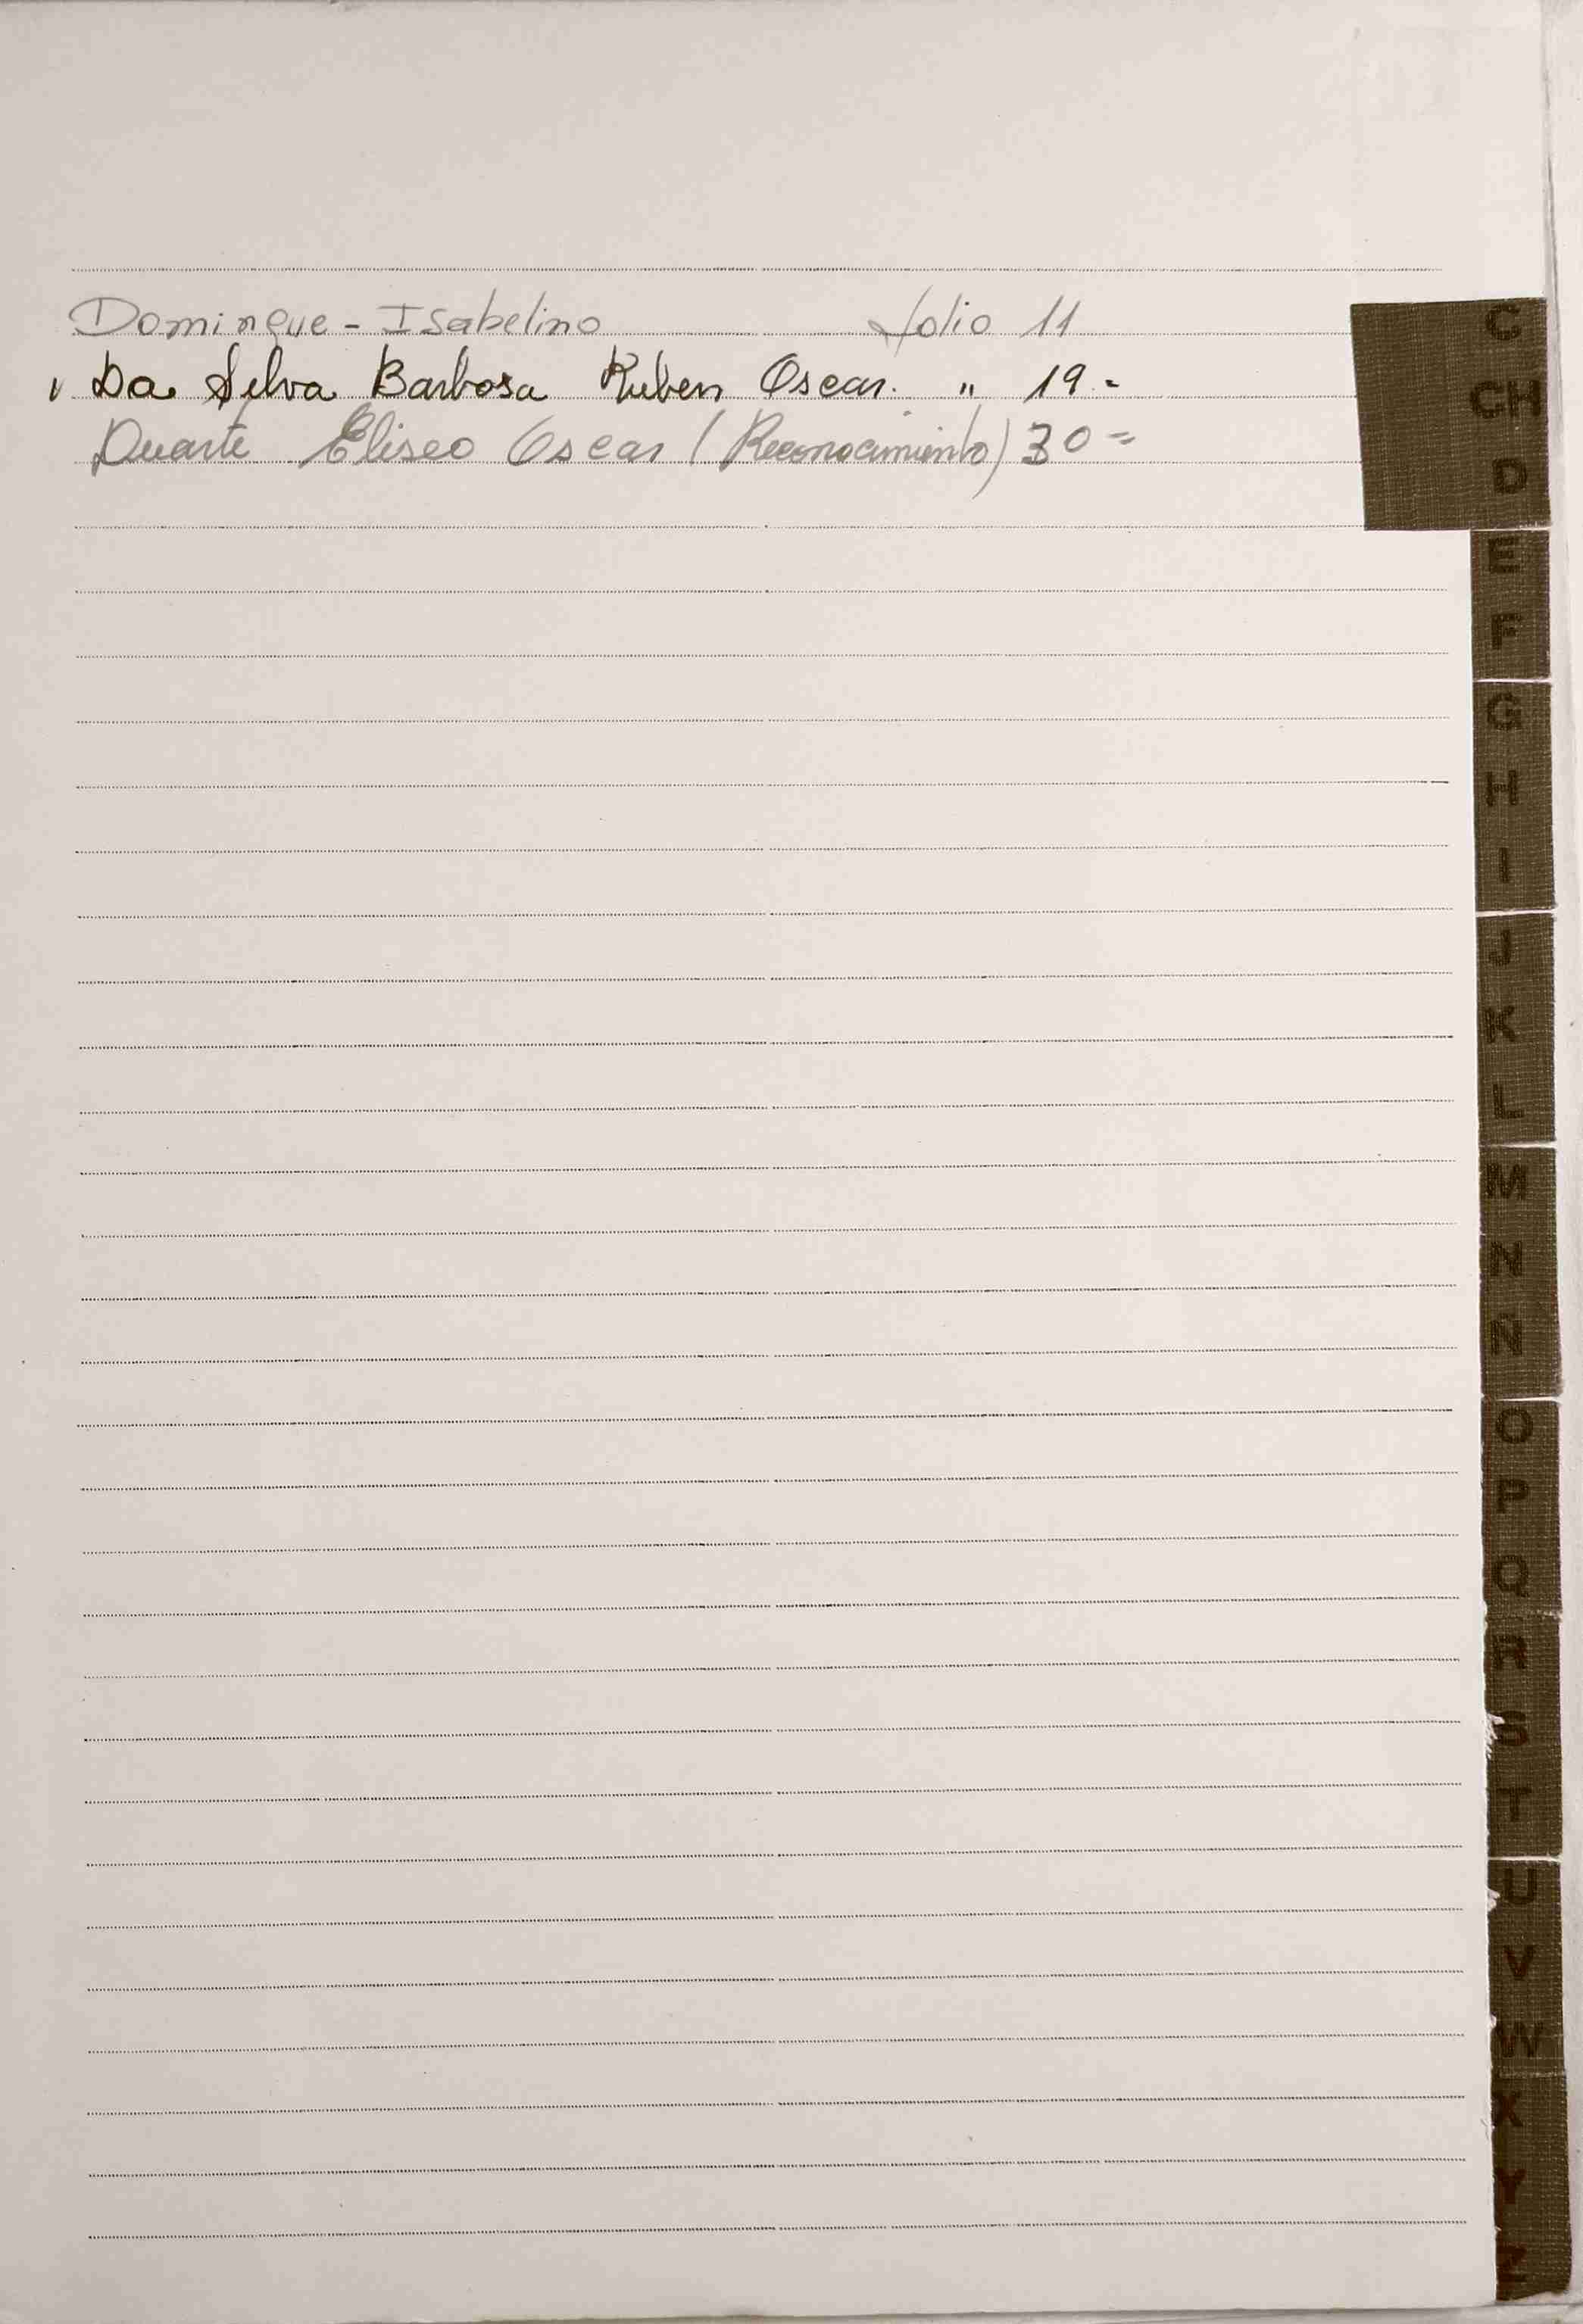 Domingue - Isabelino folio 11
Da Silva Barbosa Ruben Oscar. " 19.-
Duarte Eliseo Oscar (Reconocimiento) 30=
C
CH
D
E
F
G
H
I
J
K
L
M
N
Ñ
O
P
Q
R
S
T
U
V
W
X
Y
Z